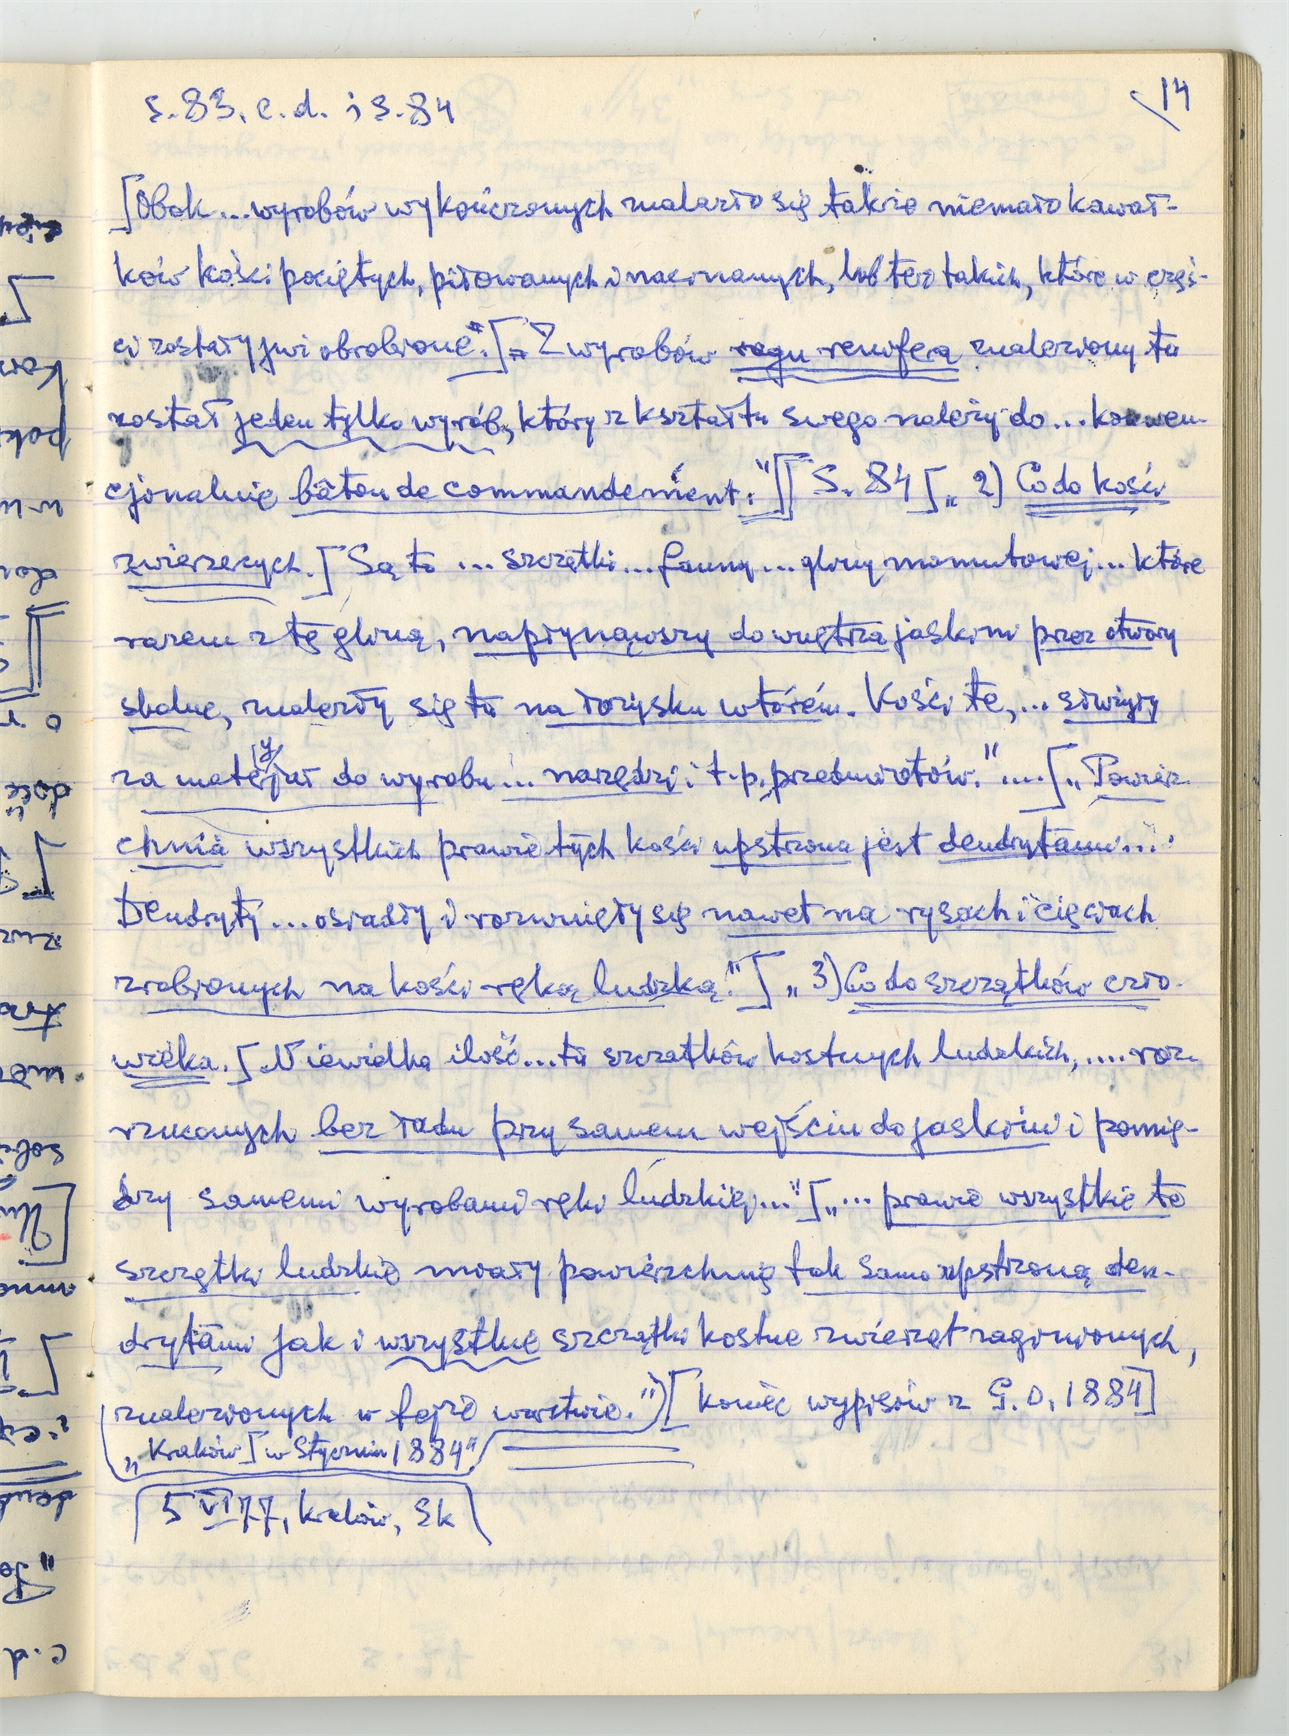 14
s. 83. c.d. i s. 84
[Obok ... wyrobów wykończonych znalazło się także niemało kawał-
ków kości pociętych, piłowanych i nacinanych, lub też takich, które w częś-
ci zostały już obrobione." [„ Z wyrobów rogu renifera znaleziony tu
został jeden tylko wyrób, który z kształtu swego należy do ... konwen-
cjonalnie bâton de commandement." ][ S. 84 [„ 2) Co do kości
zwierzęcych. [ Są to ... szczątki ... fauny ... gliny mamutowej ... które
razem z tę gliną, napłynąwszy do wnętrza jaskini przez otwory
skalne, znalazły się tu na łożysku wtórém. Kości te, ... służyły
za materyjał do wyrobu ... narzędzi i t.p. przedmiotów." .... [„ Powierz-
chnia wszystkich prawie tych kości upstrzona jest dendrytami ...
Dendryty ... osiadły i rozwinęły się nawet na rysach i cięciach
zrobionych na kości ręką ludzką." ] „ 3) Co do szczątków czło-
wieka. [ Niewielka ilość ... tu szczątków kostnych ludzkich, .... roz-
rzuconych bez ładu przy samem wejściu do jaskini i pomię-
dzy samemi wyrobami ręki ludzkiéj ..." [„ ... prawie wszystkie te
szczątki ludzkie miały powierzchnię tak samo upstrzoną den-
drytami jak i wszystkie szczątki kostne zwierząt zaginionych,
znalezionych w tejże warstwie.") [ koniec wypisów z G.O. 1884]
„ Kraków [ w Styczniu 1884"
5 VI 77, Kraków, SK